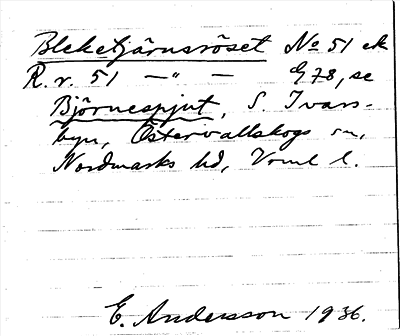 Bleketjärnsröset No 51 ek
R. r. 51 —"— G 78, se
Björnespjut, S. Ivars-
byn, Östervallskogs sn,
Nordmarks hd, Vrml l.
E. Andersson 1936.